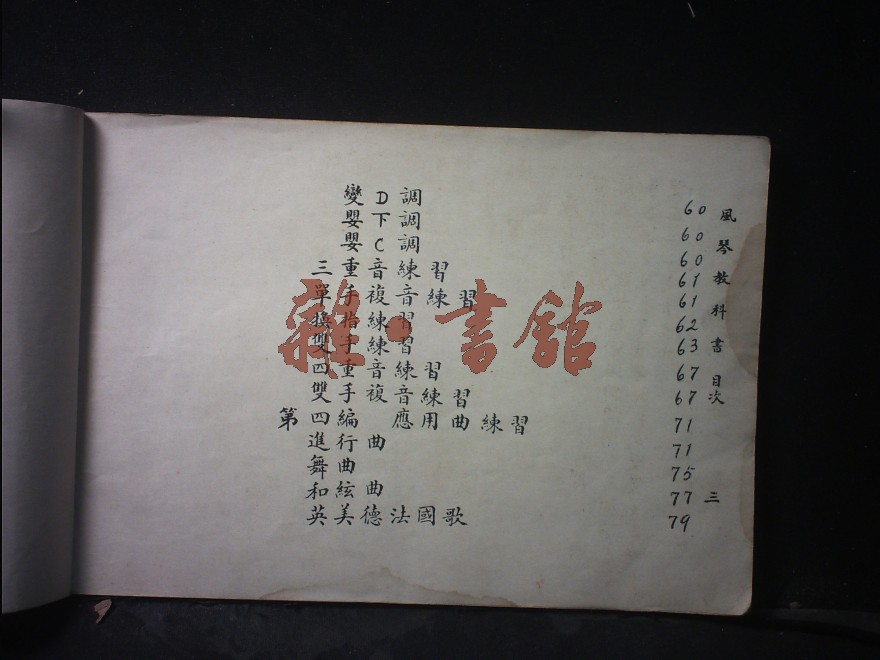 變D調 60
嬰下調 60
嬰C調 60
三重音練習 61
單手複音練習 61
換指練習 62
雙手練習 63
四重音練習 67
雙手複音練習 67
第四編 應用曲練習 71
進行曲 71
舞曲 75
和絃曲 77
英美德法國歌 79
風琴教科書目次 三
雜·書館